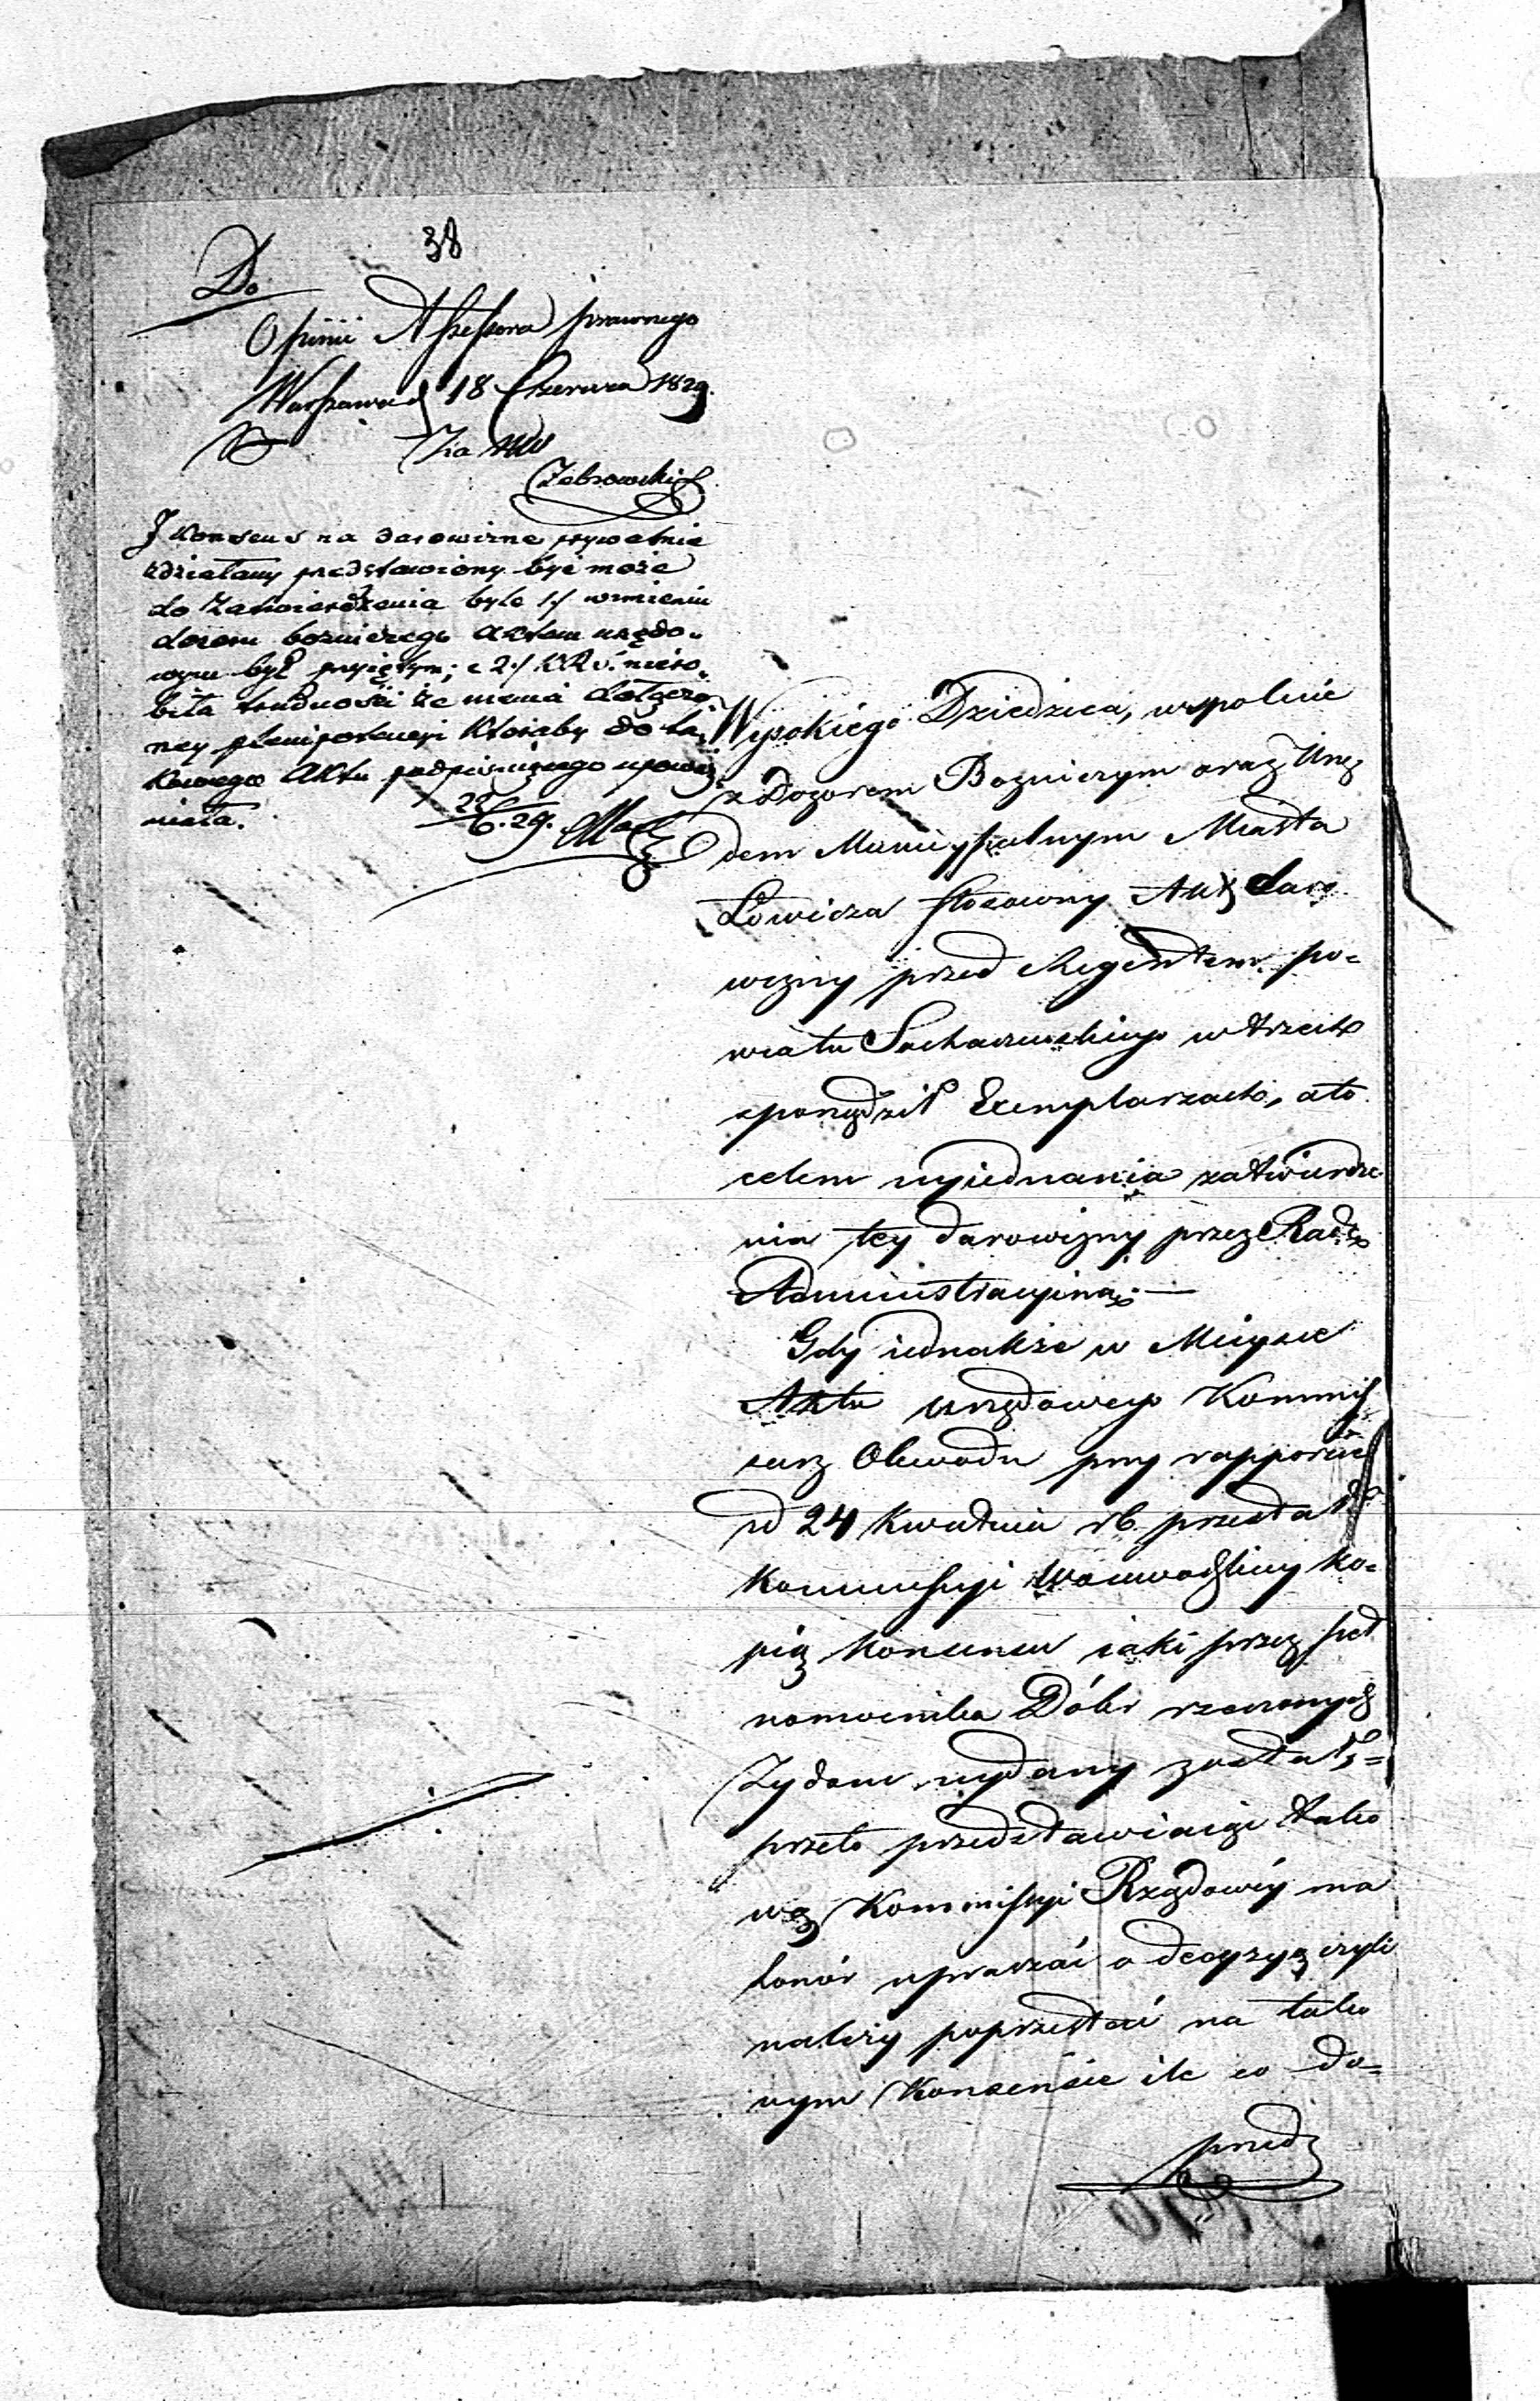 38
Do
Opinii Assessora prawnego
Warszawa d 18 Czerwca 1829.
Za
Zebrowski
J konsens na darowizne prywatnie
zdziałany przedstawiony być może
do Zatwierdzenia byle 1./ w imieniu
dozoru boznicznego aktem urzędo-
wym był przyiętym; e 2./ niero-
biła trudności że niema dołączo-
ney plenipotencyi ktoraby do ta-
kowego Aktu podpisuiącego upowaz-
niała.
22/6. 29.
Wysokiego Dziedzica, wspolnie
z Dozorem Bozniczym oraz Urzę
dem Municypalnym Miasta
Łowicza stosowny Akt Daro
wizny przed Regentem po-
wiatu Sochaczewskiego w trzech
sporządził Exemplarzach, a to
celem wyiednania zatwierdze
nia tey darowizny przez Radę
Administracyiną. —
Gdy iednakże w Mieysce
Aktu urzędowego Kommis
sarz Obwodu przy rapporcie
d 24 Kwietnia rb. przesłał
Kommissyi Woiewodzkiey ko-
pią Konsensu iaki przez peł
nomocnika Dóbr rzeczonych
Żydom wydany został, =
przeto przedstawiaiąc tako
wą Kommissyi Rządowéy ma
honór upraszać o decyzyą czyli
należy poprzestać na tako
wym Konsensie ile co do-